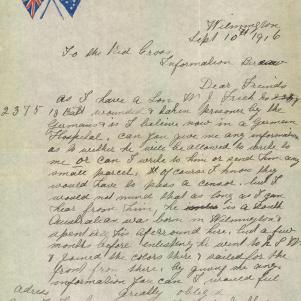 Wilmington
Sept 10th 1916
To the Red Cross
Information Bureau
Dear Friends
as I have a Son W J Frick No
2375
18 Batt wounded & taken prisoner by the
Germans & is I beleive now in a German
Hospital, can you give me any information
as to wether he will be allowed to write to
me or can I write to him or send him any
small parcel, of course I know they
would have to pass a censor, but I
would not mind that as long as I can
hear from him, he is a South
Australian was born in Wilmington &
spent his life around here, but a few
months before enlisting he went to N S W
& joined the colors there & sailed for the
front from there, by giving me any
information you can I would feel
adress
Greatly obliged